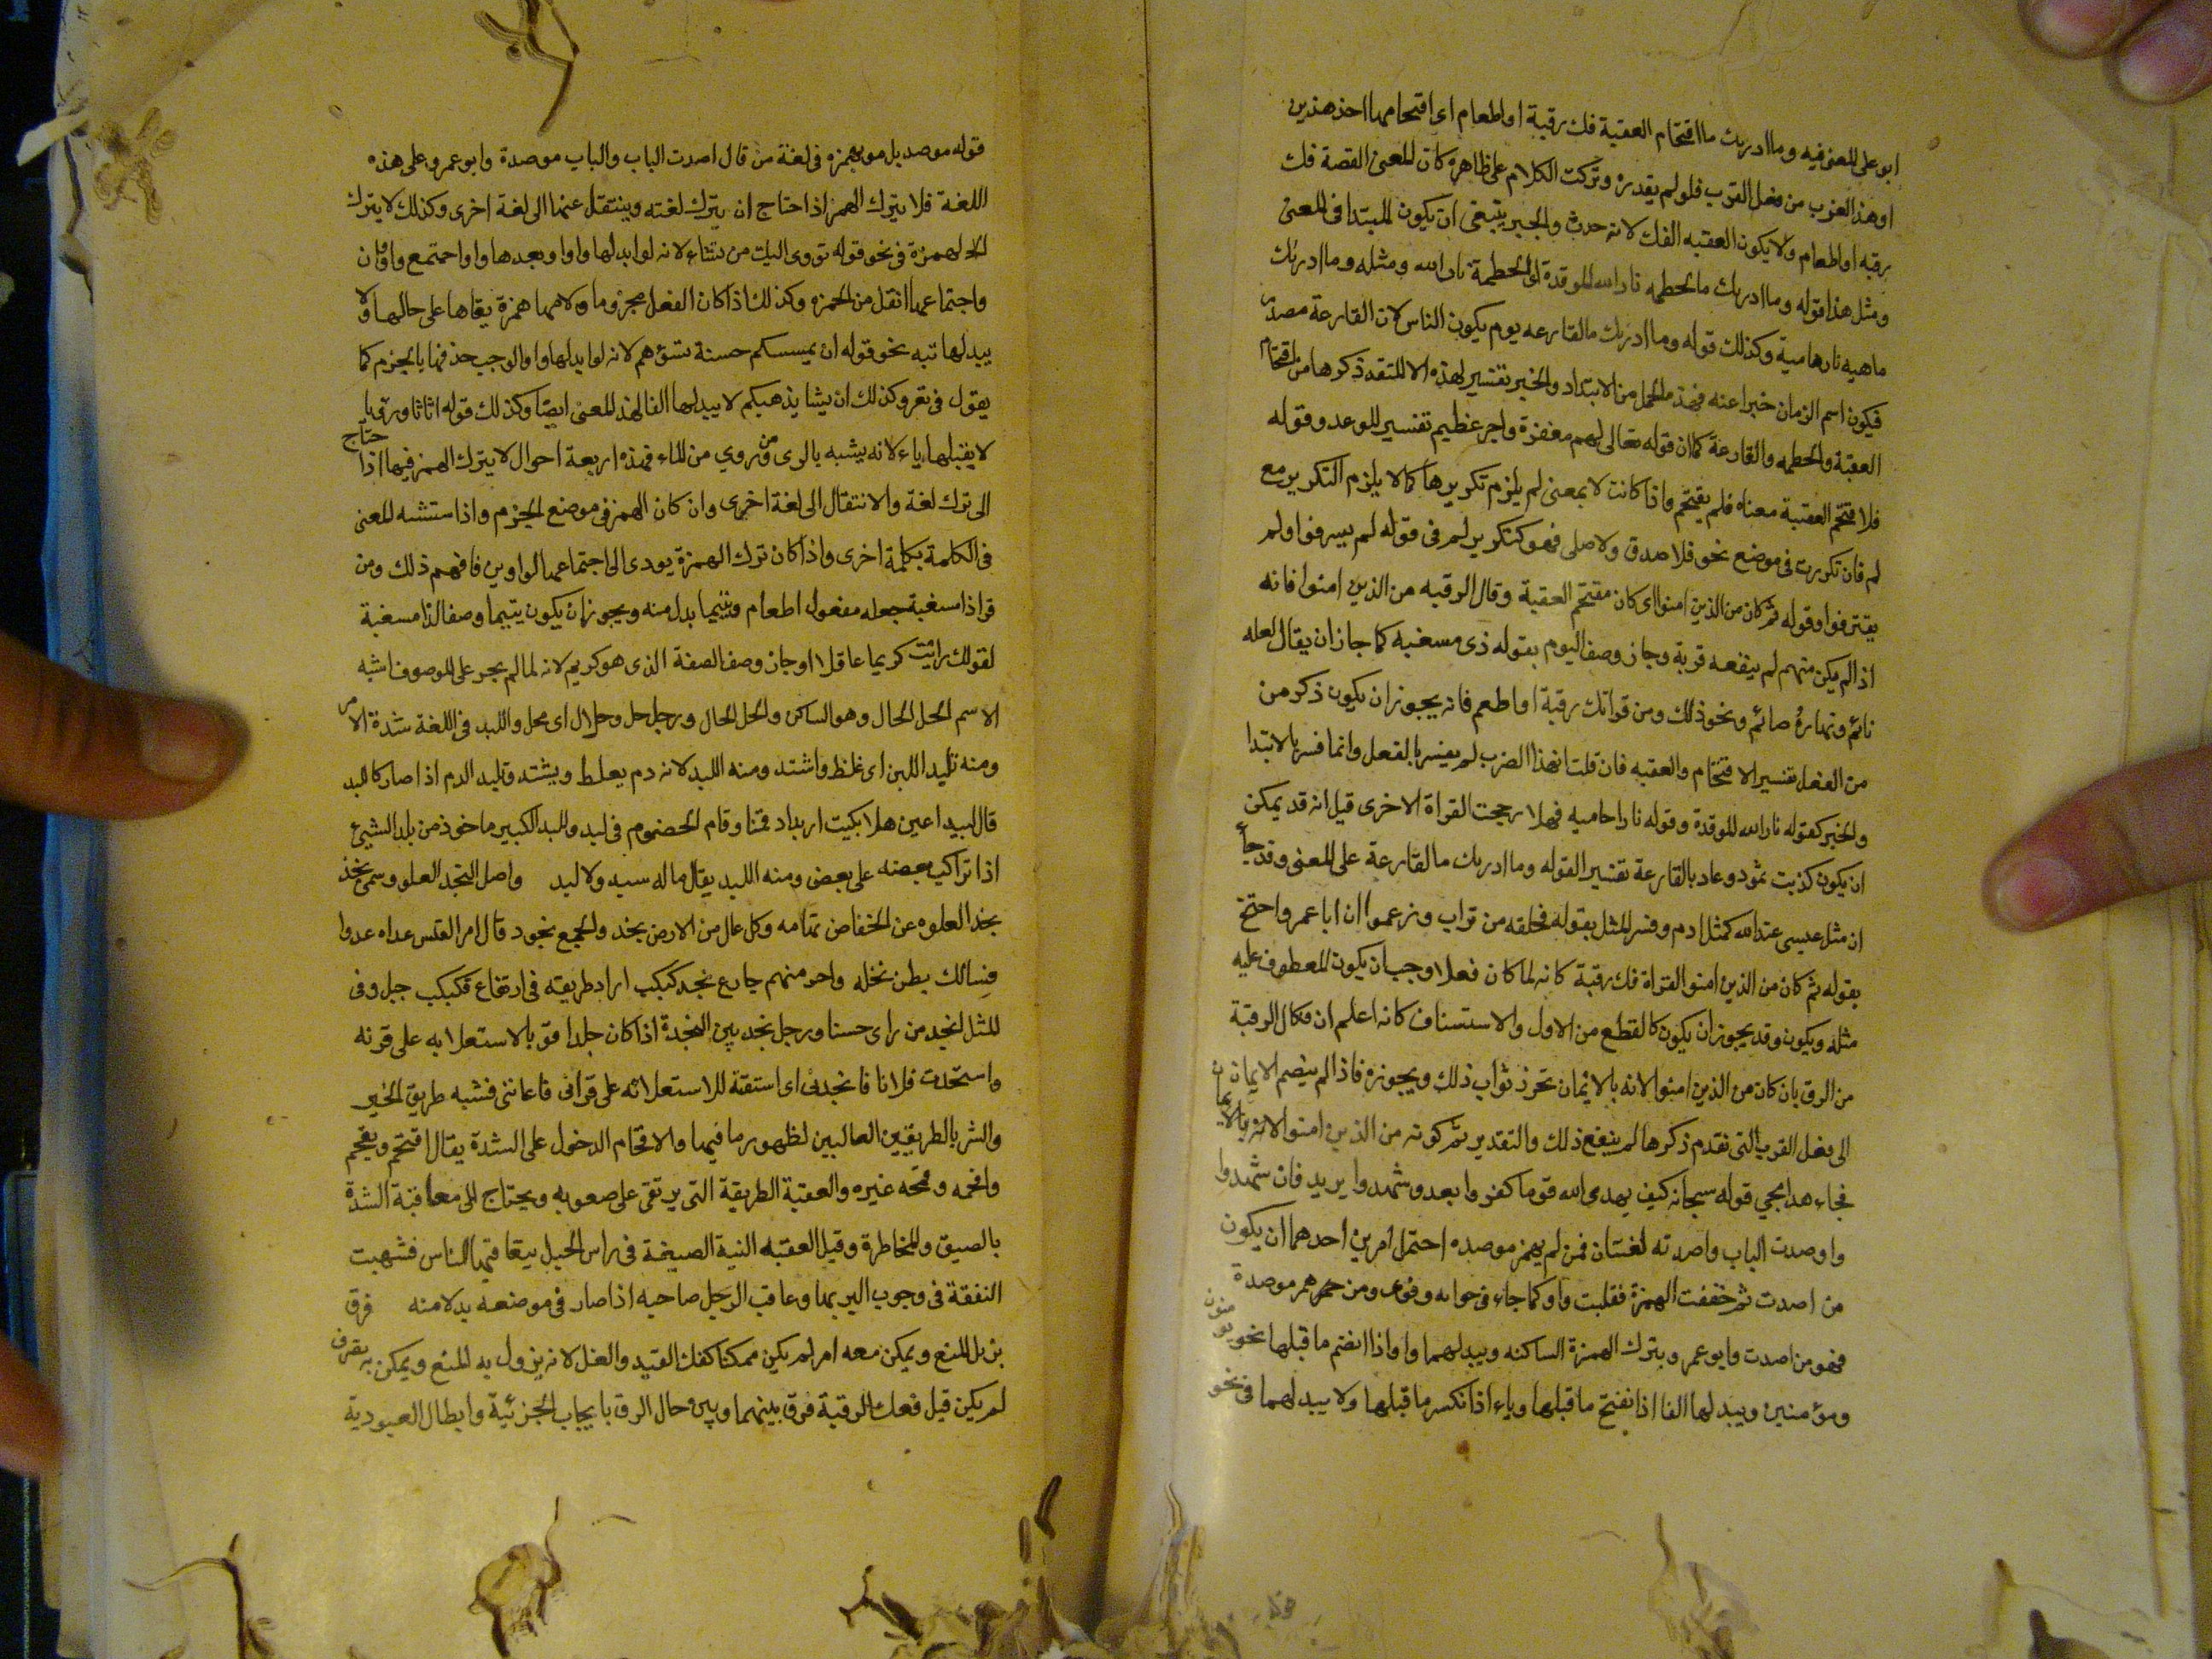 ابو على المعنى فيه وما ادريك ما اقتحام العقبة فك رقبة او اطعام اى اقتحامها احد هذين
او هذا الضرب من فعل القرب فلو لم يقدره وتركت الكلام على ظاهره كان المعنى القصة فك
رقبه او اطعام ولا يكون العقبه الفك لانه حدث والخبر ينبغى ان يكون المبتدا فى المعنى
ومثل هذا قوله وما ادريك ما الحطمه نار الله الموقدة اى الحطمة نار الله ومثله وما ادريك
ماهيه نار حامية وكذلك قوله وما ادريك ما القارعه يوم يكون الناس لان القارعة مصدر
فيكون اسم الزمان خبرا عنه فهذه الجمل من الابتداء والخبر تفسير لهذه الا المتقد ذكرها من اقتحام
العقبة والحطمه والقارعة كما ان قوله تعالى لهم مغفرة واجر عظيم تفسير للوعد وقوله
فلا اقتحم العقبة معناه فلم يقتحم واذا كانت لا بمعنى لم يلزم تكريرها كما لا يلزم التكرير مع
لم فان تكررت فى موضع نحو فلا صدق ولا صلى فهو كتكرير لم فى قوله لم يسرفوا ولم
يقترفوا وقوله ثم كان من الذين امنوا اى كان مقتحم العقبة وقال الرقبه من الذين امنوا فانه
اذا لم يكن منهم لم ينفعه قربة وجاز وصف اليوم بقوله ذى مسغبه كما جاز ان يقال لعله
نائم ونهاره صائم ونحو ذلك ومن قراتك رقبة او اطعم فانه يجوز ان يكون ذكر من
من الفعل تفسير الاقتحام والعقبه فان قلت ان هذا الضرب لم يفسر بالفعل وانما فسر بالابتدا
والخبر كقوله نار الله الموقدة وقوله نارا حاميه فهلا رجحت القراة الاخرى قيل انه قد يمكن
ان يكون كذبت ثمود وعاد بالقارعة تفسير القوله وما ادريك ما القارعة على المعنى وقد جا
ان مثل عيسى عند الله كمثل ادم وفسر المثل بقوله خلقه من تراب وزعموا ان ابا عمرو احتج
بقوله ثم كان من الذين امنوا القراة فك رقبة كانه لما كان فعلا وجب ان يكون المعطوف عليه
مثله ويكون وقد يجوز ان يكون كالقطع من الاول والاستيناف كانه اعلم ان فكاك الرقبة
من الرق بان كان من الذين امنوا لانه بالايمان تحرز ثواب ذلك ويجوزه فاذا لم ينضم الايمان
الى فعل القرب التى تقدم ذكرها لم ينفع ذلك والتقدير ثم كونه من الذين امنوا لانه بالايما
فجاء هذا مجى قوله سبحانه كيف يهدى الله قوما كفروا بعد وشهدوا يريد فان شهدوا
واوصدت الباب واصدته لغتان فمن لم يهمز موصده احتمل امرين احدهما ان يكون
من اصدت ثم خففت الهمزة فقلبت واو كما جاء فى ومن همز موصدة
فهو من اصدت وابو عمرو يترك الهمزة الساكنه ويبدلهما واوا اذا انضم ما قبلها نحو يومنون
ومؤمنين ويبدلها الفا اذا نفتح ما قبلها وياء اذا نكسر ما قبلها ولا يبدلهما فى نحو
قوله موصد بل مو بهمزه فى لغة من قال اصدت الباب والباب موصدة وابو عمرو على هذه
اللغة فلا يترك الهمز اذا احتاج ان يترك لغته وينتقل عنها الى لغة اخرى وكذلك لا يترك
الهمزة فى نحو قوله تووى اليك من تشاء لانه لو ابدلها واوا وبعدها واوا اجتمع واوان
واجتماعهما اثقل من الهمزه وكذلك اذا كان الفعل مجزوما ولامها همزة يبقاها على حالها ولا
يبدلها نحو قوله ان يمسسكم حسنة تسؤهم لانه لو ابدلها واوا لوجب حذفها بالجزم كما
يقول فى تغر وكذلك ان يشا يذهبكم لا يبدلها الفا لهذ المعنى ايضا وكذلك قوله اثاثا ورئيا
لا يقلبها ياء لانه يشبه بالرى من روي من الماء فهذه اربعة احوال لا يترك الهمز فيها اذا احتاج
الى ترك لغة والانتقال الى لغة اخرى وان كان الهمز فى موضع الجزم واذا ستشبه المعنى
فى الكلمة بكلمة اخرى واذا كان ترك الهمزة يودى الى اجتماعها الواوين فافهم ذلك ومن
قرا ذا مسغبة جعله مفعول اطعام ويتيما بدل منه ويجوز ان يكون يتيما وصفا لذا مسغبة
لقولك رايت كريما عاقلا وجاز وصف الصفة الذى هو كريم لانه لما لم يجر على الموصوف اشبه
الاسم الحل الحال وهو الساكن والحل الحال ورجل حل وحلال اى محل واللبد فى اللغة شدة الامر
ومنه تلبد اللبن اى غلظ واشتد ومنه اللبد لانه دم يغلظ ويشتد وتلبد الدم اذا صار كاللبد
قال لبيد اعين هلا بكيت اربد اد قمنا وقام الخصوم فى لبد واللبد الكبير ماخوذ من تلبد الشيئ
اذا تراكب بعضه على بعض ومنه اللبد يقال ماله سبد ولا لبد واصل النجد العلو وسمى نجد
نجد العلوه عن الخفاض تهامه وكل عال من الارض نجد والجمع نجود قال امر القيس غداه غدوا
فسالك بطن نخله واخر منهم جازع نجد كبكب اراد طريقه فى ارتفاع فكبكب جبل وفى
المثل انجد من راى حسنا ورجل نجد بين النجدة اذا كان جلدا قويا لاستعلائه على قرنه
واستنجدت فلانا فانجدنى اى استعنته للاستعلائه على قرنى فاعاننى فشبه طريق الخير
والشر بالطريقين العاليين لظهور ما فيهما والاقحام الدخول على الشدة يقال اقتحم ويقحم
واقحمه وقحمه غيره والعقبة الطريقة التى يرتقى على صعوبه ويحتاج الى معاقبة الشدة
بالضيق والمخاطرة وقيل العقبه الثنية الضيقة فى راس الجبل يتعاقبها الناس فشبهت
النفقة فى وجوب البر بها وعاقب الرجل صاحبه اذا صار فى موضعه بدلا منه فرق
يزيل المنع ويمكن معه امر لم يكن ممكنا كفك القيد والغل لانه يزول به المنع ويمكن به تصرف
لم يكن قبل ففك الرقبة فرق بينهما وبين حال الرق بايجاب الحرئية وابطال العبودية